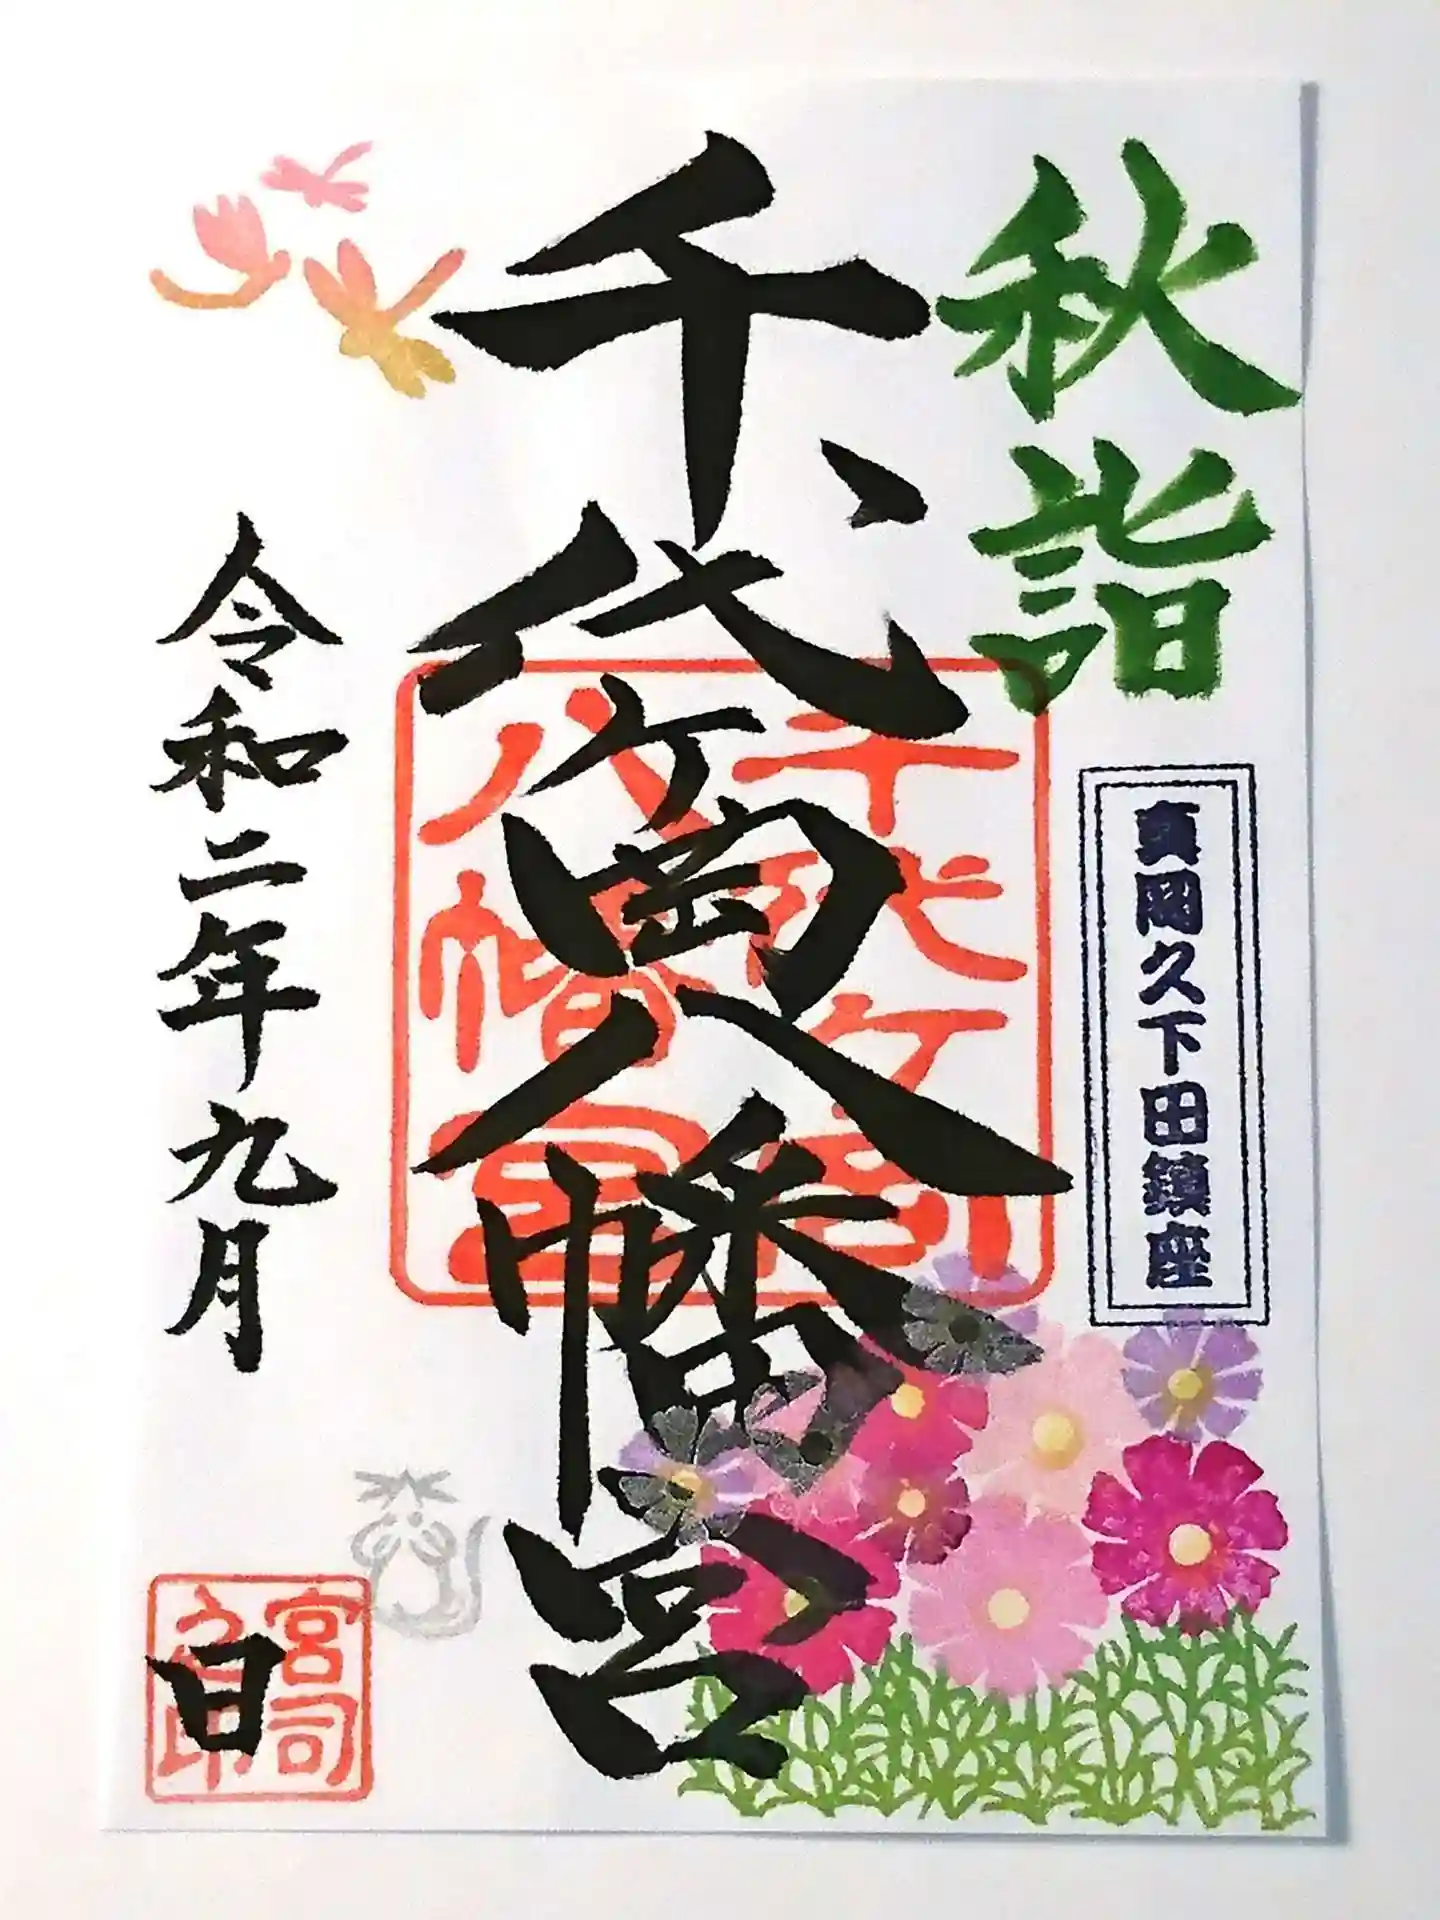 秋詣
真岡久下田鎮座
千代ヶ岡八幡宮
千代ヶ岡八幡宮
令和二年九月
日
宮司之印